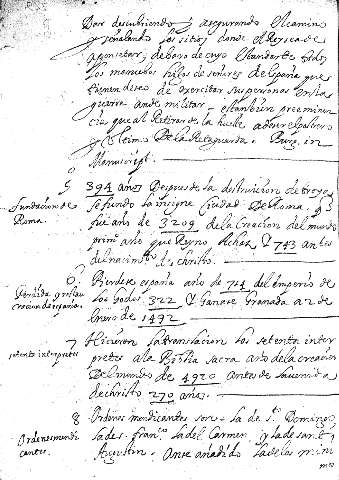 Por descubriendo y asegurando El camino
y señalando los sitios donde el Rey sea de
aposentar; debaxo de cuyo Estandarte todos
los mançebos hijos de señores de España que
tienen deseo de exercitar sus personas en la
guerra an de militar – es tanbien preeminen
cia que al Retirar de la hueste a de ser el postrero
y Vltimo De la Retaguarda –
Manuscript.
5
Fundacion de
Roma.
394 años Despues de la destruicion de troya
se fundo la insigne Ciudad De Roma.
fue año de 3209 de la Creacion del mundo
primº año que Reyno Achaz, Y 743 antes
del nacimtº de christo.
6
Perdida y restau
cion de españa.
Pierdese españa año de 714 del imperio de
los Godos 322 Y Ganose Granada a 2 de
Enero de 1492
7
setenta interpretes
Hicieron la translacion los setenta inter
pretes a la Biblia sacra año de la creacion
Del mundo de 4920 antes de la venida
de christo 270 años.
8
Ordenes mendi
cantes.
Ordenes mendicantes son – la de s.to Domingo
la de s. franco, la del Carmen, y la de sant
Augustin. Ânse añadido la de los mini
mos